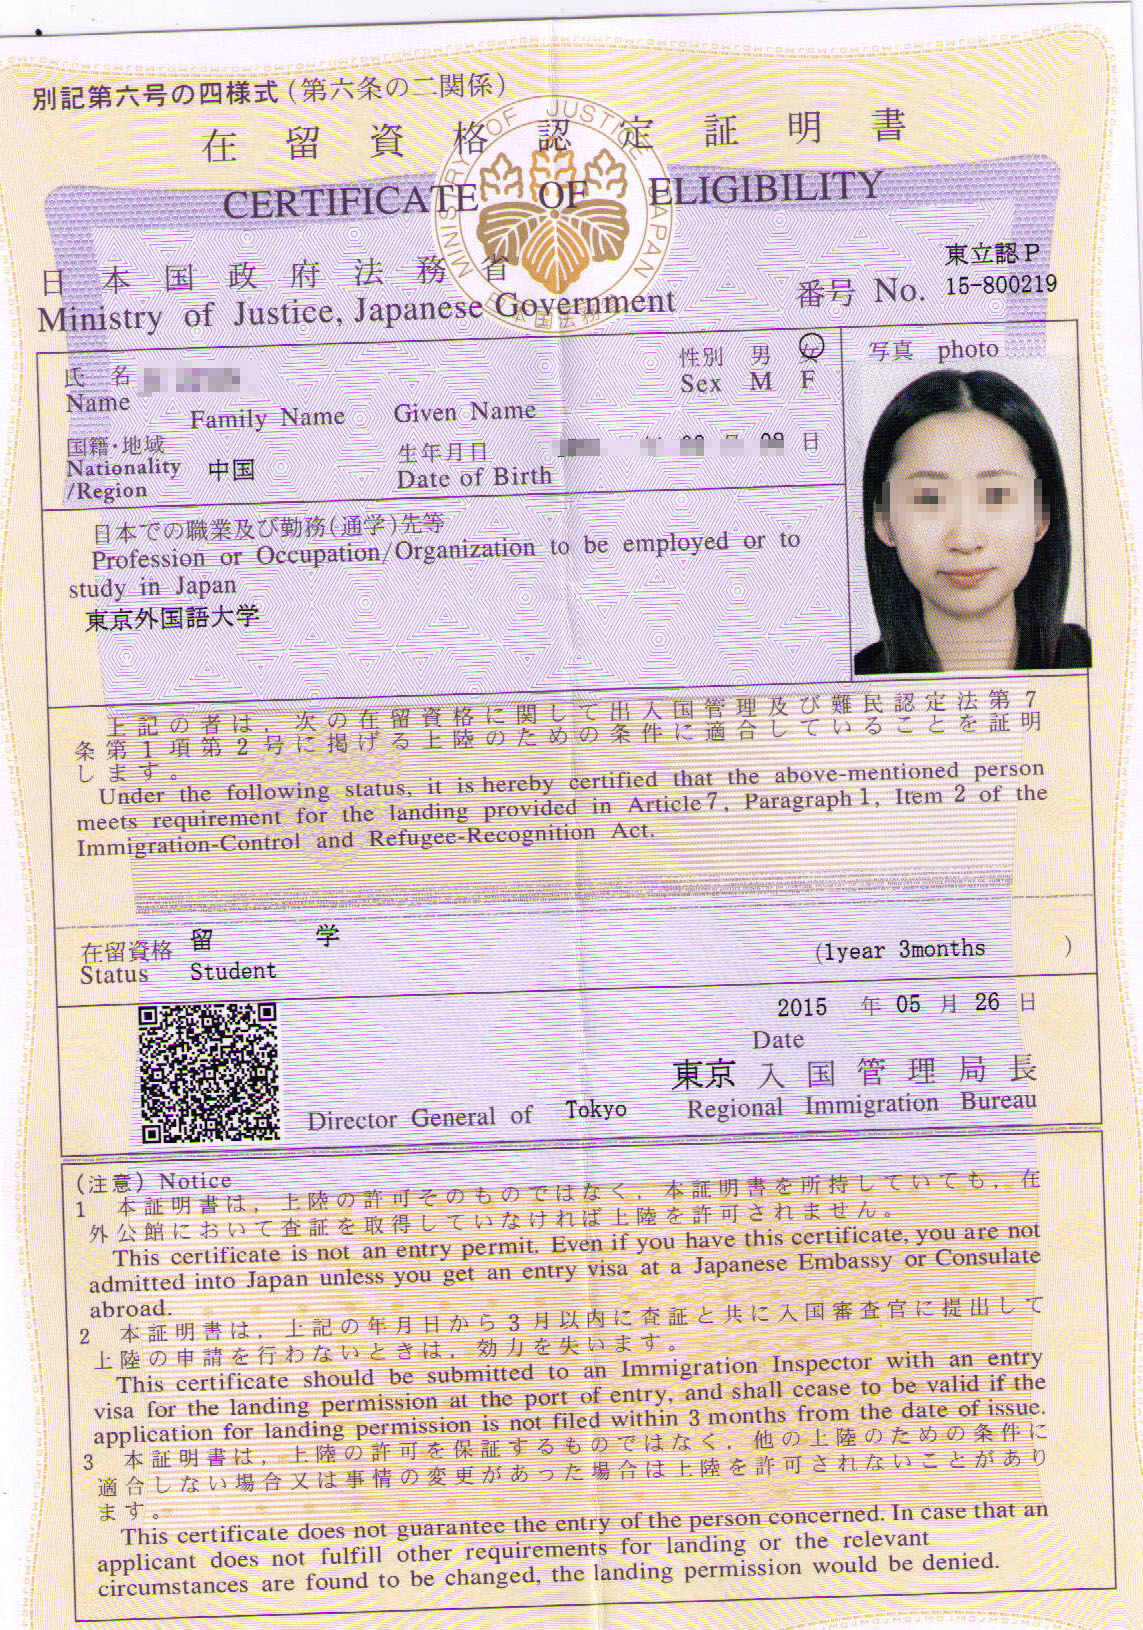 別記第六号の四様式(第六条の二関係)
在留資格認定証明書
CERTIFICATE OF ELIGIBILITY
MINISTRY OF JUSTICE JAPAN
日本国政府法務省
Ministry of Justice, Japanese Government
番号 No. 東立認P
15-800219
氏名
Name
Family Name Given Name
性別 男 女
Sex M F
写真 photo
国籍・地域
Nationality
/Region
中国
生年月日 年 月 日
Date of Birth
日本での職業及び勤務(通学)先等
Profession or Occupation/Organization to be employed or to
study in Japan
東京外国語大学
上記の者は,次の在留資格に関して出入国管理及び難民認定法第7
条第1項第2号に掲げる上陸のための条件に適合していることを証明
します。
Under the following status, it is hereby certified that the above-mentioned person
meets requirement for the landing provided in Article 7, Paragraph 1, Item 2 of the
Immigration-Control and Refugee-Recognition Act.
在留資格 留学
Status Student
(1year 3months )
2015 年 05 月 26 日
Date
東京 入国管理局長
Director General of Tokyo Regional Immigration Bureau
(注意) Notice
1 本証明書は,上陸の許可そのものではなく,本証明書を所持していても,在
外公館において査証を取得していなければ上陸を許可されません。
This certificate is not an entry permit. Even if you have this certificate, you are not
admitted into Japan unless you get an entry visa at a Japanese Embassy or Consulate
abroad.
2 本証明書は,上記の年月日から3月以内に査証と共に入国審査官に提出して
上陸の申請を行わないときは,効力を失います。
This certificate should be submitted to an Immigration Inspector with an entry
visa for the landing permission at the port of entry, and shall cease to be valid if the
application for landing permission is not filed within 3 months from the date of issue.
3 本証明書は,上陸の許可を保証するものではなく,他の上陸のための条件に
適合しない場合又は事情の変更があった場合は上陸を許可されないことがあり
ます。
This certificate does not guarantee the entry of the person concerned. In case that an
applicant does not fulfill other requirements for landing or the relevant
circumstances are found to be changed, the landing permission would be denied.